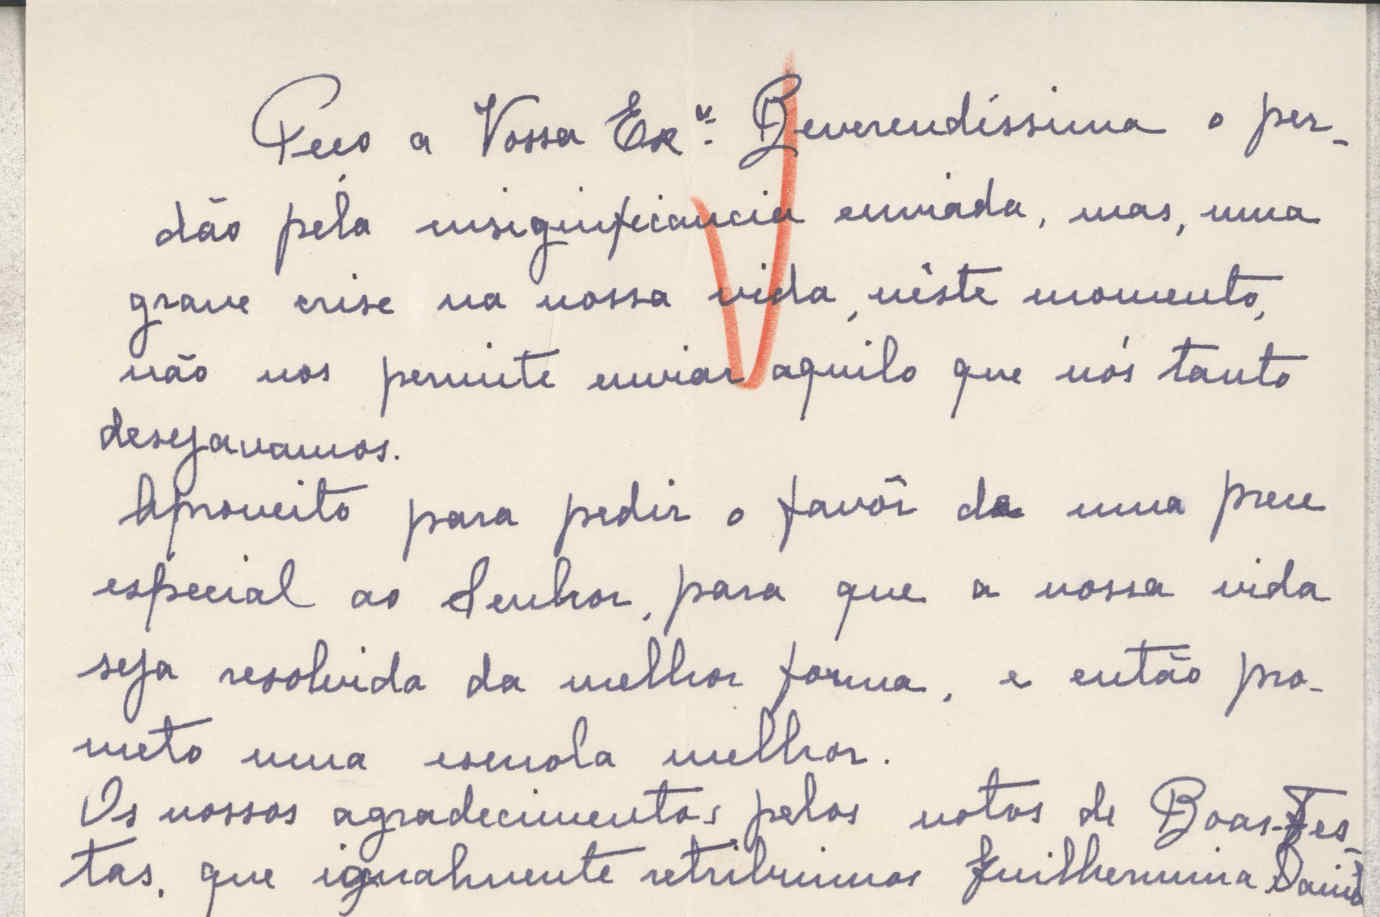 Peço a Vossa Exª. Reverendíssima o per-
dão péla insignificancia enviada, mas, uma
grave crise na nossa vida, nêste momento,
não nos permite enviar aquilo que nós tanto
desejavamos.
Aproveito para pedir o favôr de uma prece
especial ao Senhor, para que a nossa vida
seja resolvida da melhor forma, e então pro-
meto uma esmola melhor.
Os nossos agradecimentos pelos votos de Boas-Fes-
tas, que igualmente retribuimos Guilhermina